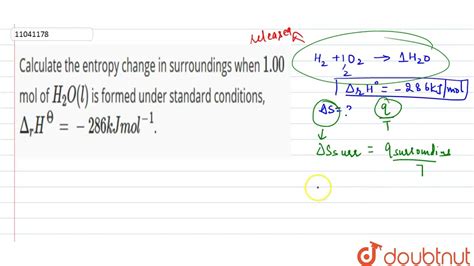 11041178
Calculate the entropy change in surroundings when 1.00
mol of H₂O(l) is formed under standard conditions,
Δ_rH^θ = −286kJmol⁻¹.
released
H₂ + 1/2 O₂ → 1H₂O
Δ_rH° = −286KJ/mol
ΔS=? q/T
ΔSsurr = qsurrounding/T
doubtnut